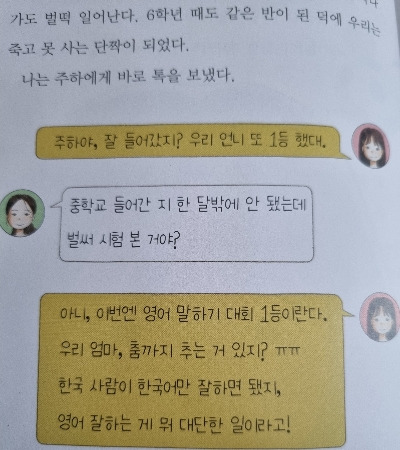 가도 벌떡 일어난다. 6학년 때도 같은 반이 된 덕에 우리는
죽고 못 사는 단짝이 되었다.
나는 주하에게 바로 톡을 보냈다.
주하야, 잘 들어갔지? 우리 언니 또 1등 했대.
중학교 들어간 지 한 달밖에 안 됐는데
벌써 시험 본 거야?
아니, 이번엔 영어 말하기 대회 1등이란다.
우리 엄마, 춤까지 추는 거 있지? ㅠㅠ
한국 사람이 한국어만 잘하면 됐지,
영어 잘하는 게 뭐 대단한 일이라고!